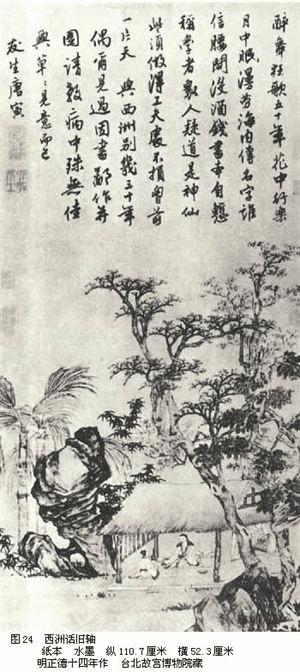 醉舞狂歌五十年花中行樂
月中眠漫勞海內傳名字誰
信腰間沒酒錢書本自慙
稱學者衆人疑道是神仙
些須做得工夫處不損胷前
一片天 與西洲別幾三十年
偶爾見過因書鄙作并
圖請教病中殊無佳
興草〻見意而已
友生唐寅
图24 西洲话旧轴
纸本 水墨 纵110.7厘米 横52.3厘米
明正德十四年作 台北故宫博物院藏